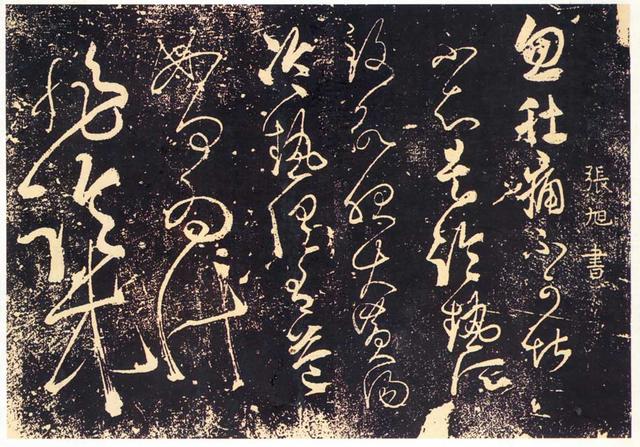 忽肚痛不可堪
張旭書
不知是冷熱所
致欲服大黃湯
冷熱俱有益
如何為計
非冷哉